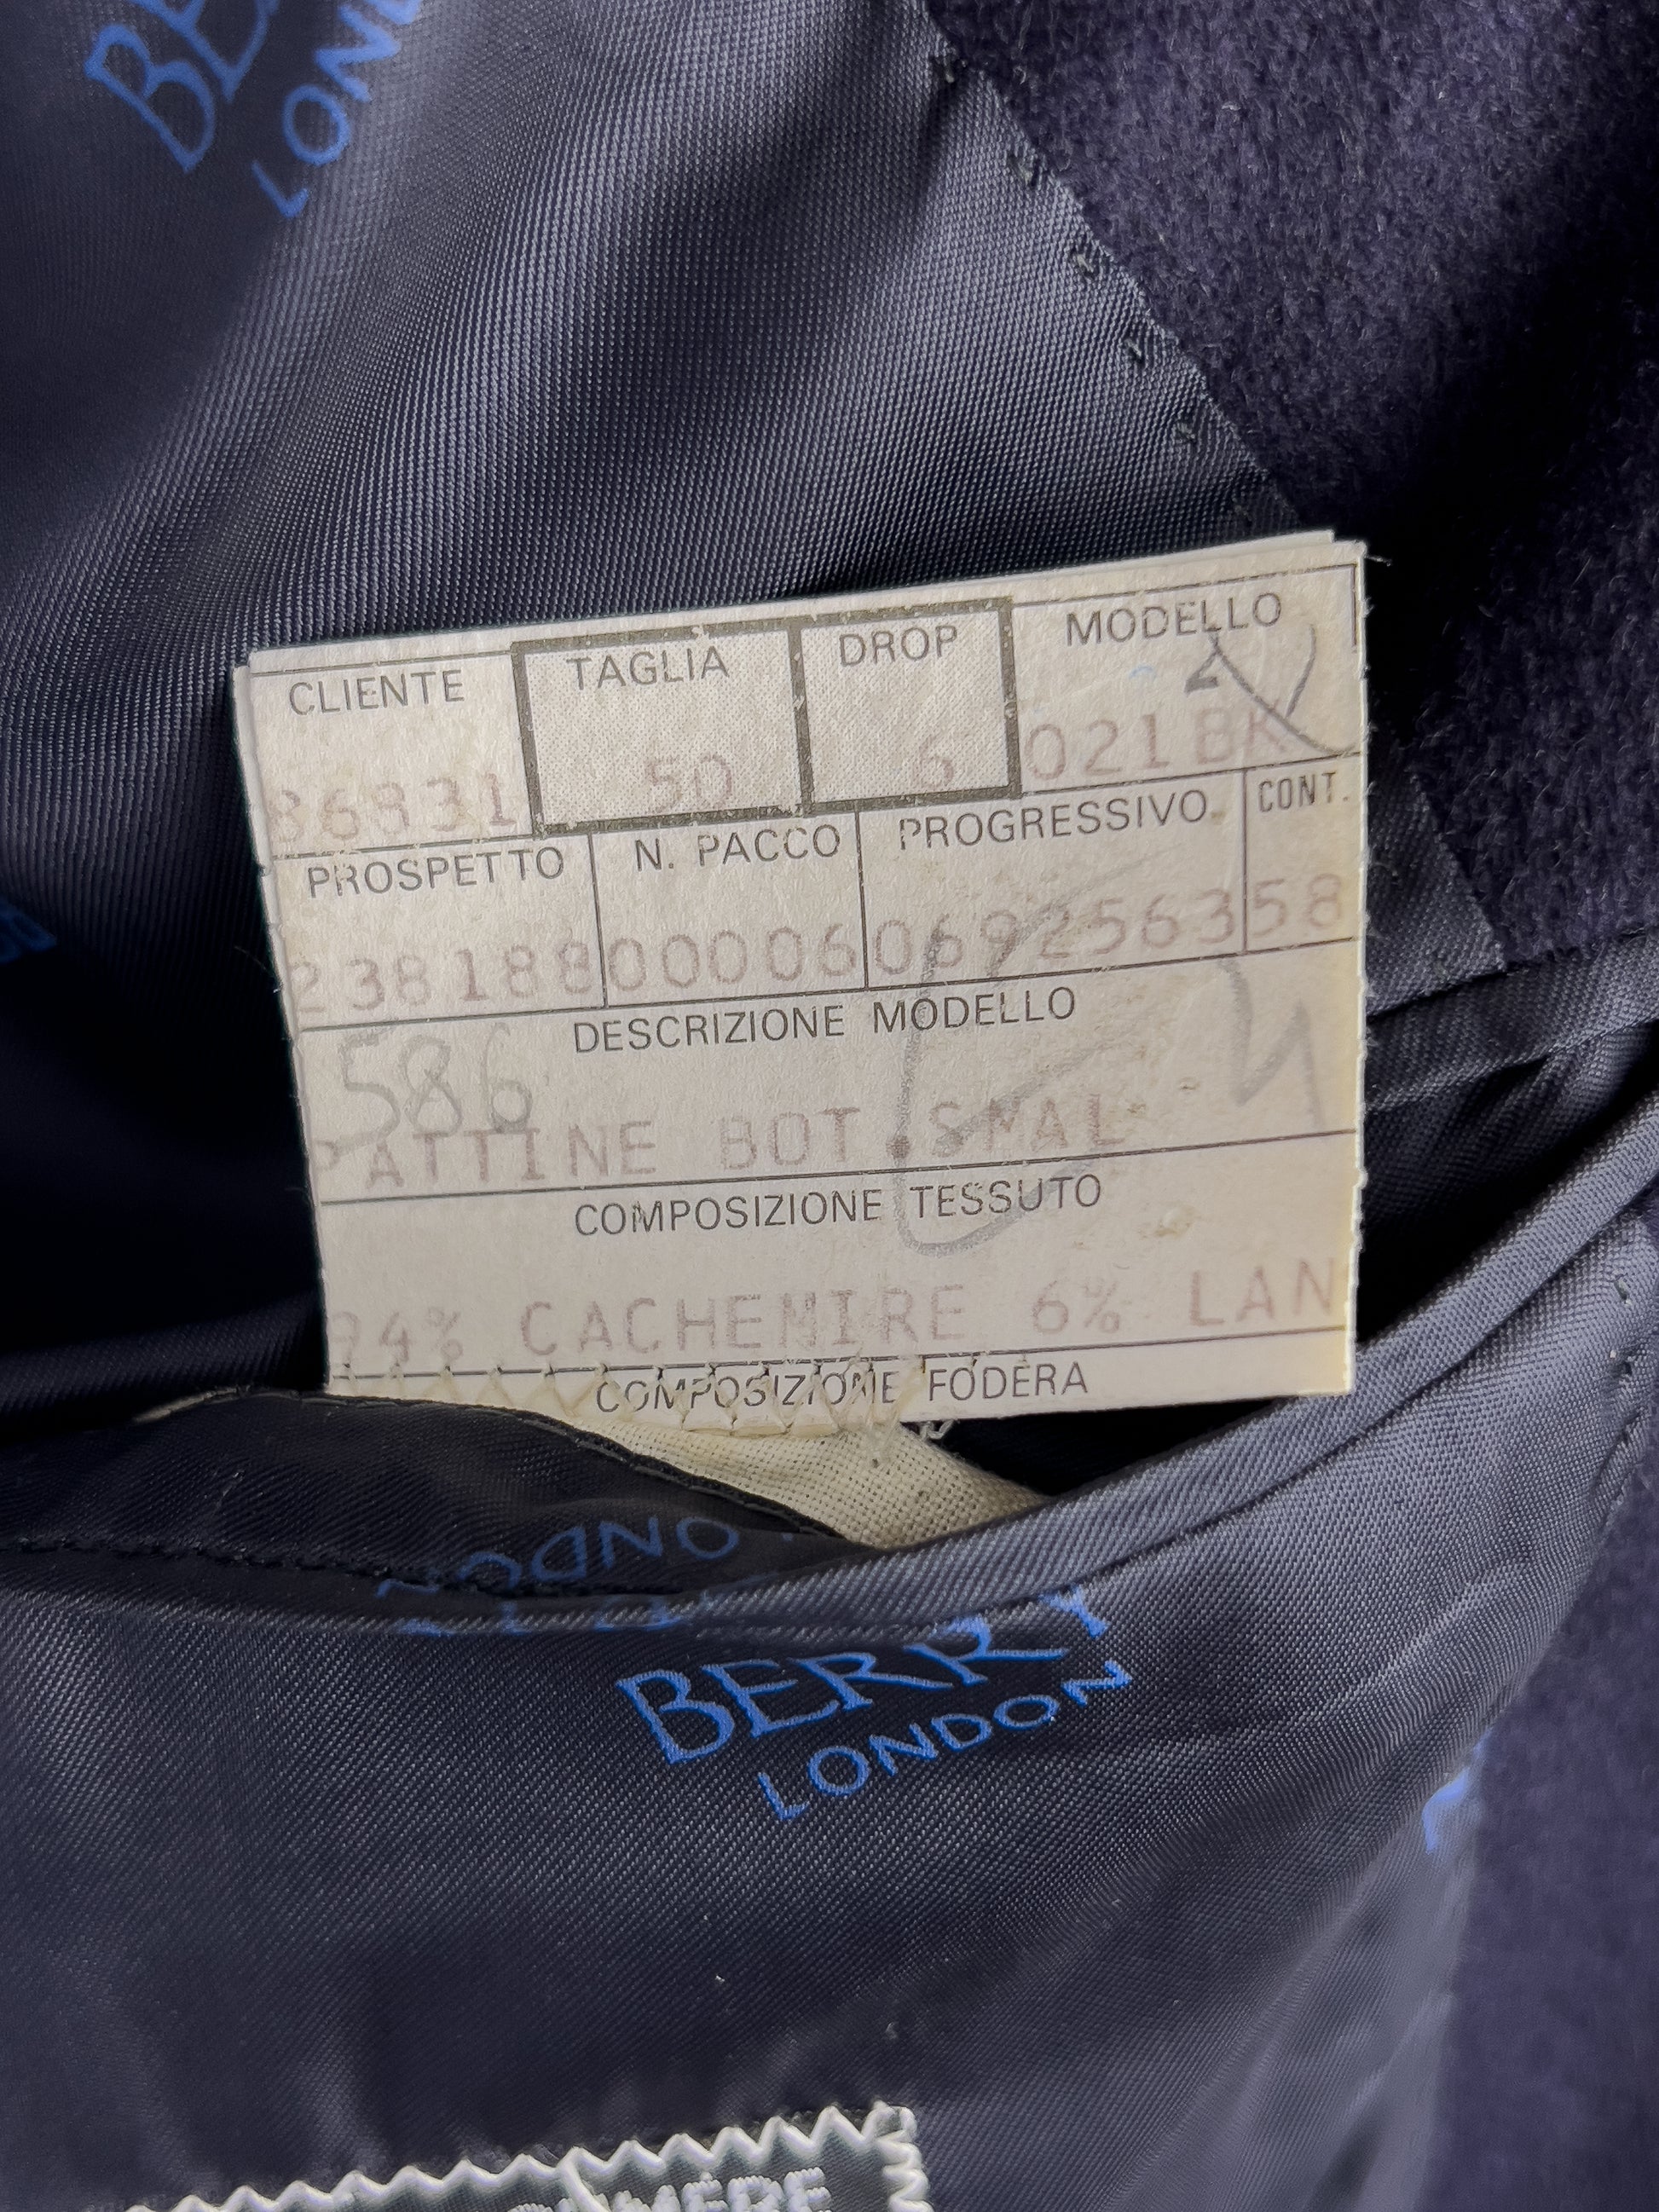 LONDON
CLIENTE TAGLIA DROP MODELLO
86831 50 6 021BK
PROSPETTO N. PACCO PROGRESSIVO CONT.
238188 00006 06925635 8
586 DESCRIZIONE MODELLO
PATTINE BOT.SMAL
COMPOSIZIONE TESSUTO
94% CACHEMIRE 6% LAN
COMPOSIZIONE FODERA
BERRY
LONDON